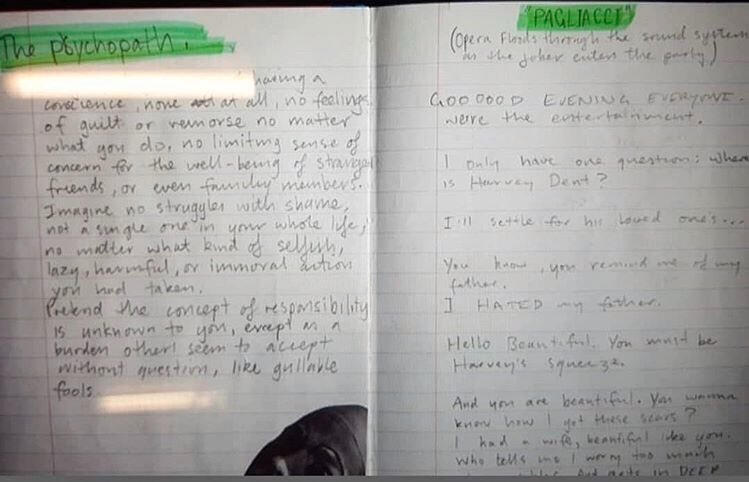 The psychopath.
having a
conscience, none at all, no feelings
of guilt or remorse no matter
what you do, no limiting sense of
concern for the well-being of strangers
friends, or even familiy members.
Imagine no struggles with shame,
not a single one in your whole life,
no matter what kind of selfish,
lazy, harmful, or immoral action
you had taken.
Pretend the concept of responsibility
is unknown to you, except as a
burden others seem to accept
without question, like gullable
fools
"PAGLIACCI"
(Opera floods through the sound system
as the joker enters the party)
GOOOOOD EVENING EVERYONE.
were the entertainment.
I only have one question: where
is Harvey Dent?
I'll settle for his loved one's...
You know, you remind me of my
father.
I HATED my father.
Hello Beautiful. You must be
Harvey's squeeze.
And you are beautiful. You wanna
know how I got these scars?
I had a wife, beautiful like you.
who tells me I worry too much
And gets in DEEP